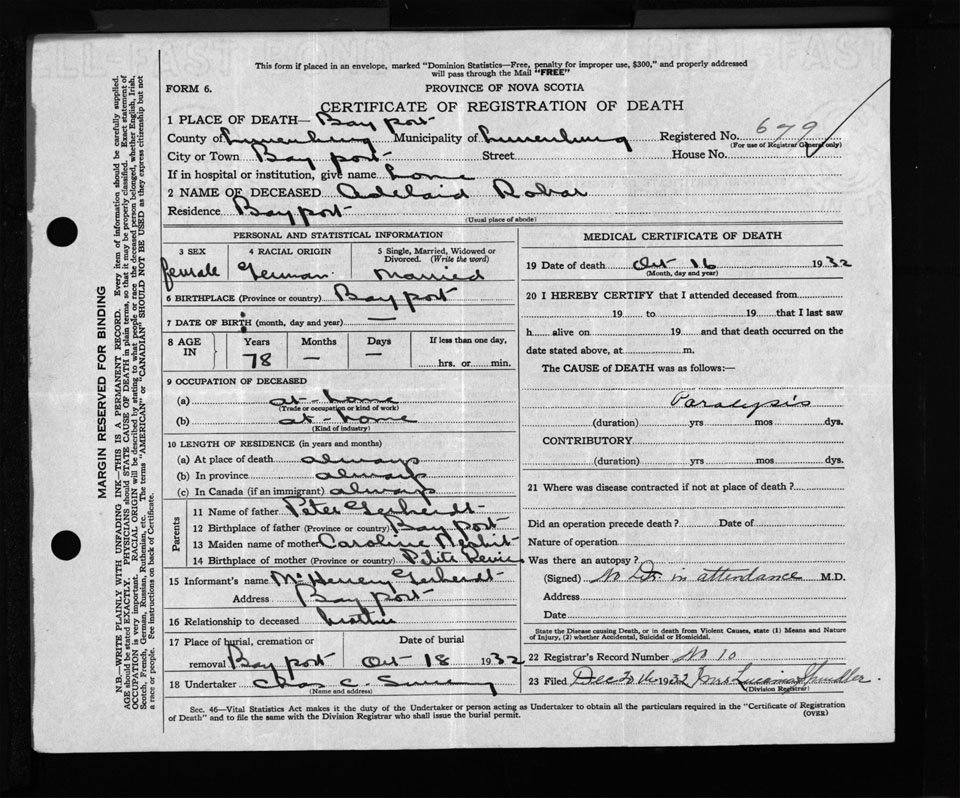 This form if placed in an envelope, marked "Dominion Statistics—Free, penalty for improper use, $300," and properly addressed
will pass through the Mail "FREE"
FORM 6.
PROVINCE OF NOVA SCOTIA
CERTIFICATE OF REGISTRATION OF DEATH
1 PLACE OF DEATH— Bayport
County of Lunenburg Municipality of Lunenburg Registered No. 679
(For use of Registrar General only)
City or Town Bayport Street House No.
If in hospital or institution, give name home
2 NAME OF DECEASED Adelaid Robar
Residence Bayport
(Usual place of abode)
PERSONAL AND STATISTICAL INFORMATION
3 SEX 4 RACIAL ORIGIN 5 Single, Married, Widowed or
Divorced. (Write the word)
female German Married
6 BIRTHPLACE (Province or country) Bayport
7 DATE OF BIRTH (month, day and year) —
8 AGE IN Years Months Days If less than one day,
78 — — hrs. or min.
9 OCCUPATION OF DECEASED
(a) at-home
(Trade or occupation or kind of work)
(b) at-home
(Kind of industry)
10 LENGTH OF RESIDENCE (in years and months)
(a) At place of death always
(b) In province always
(c) In Canada (if an immigrant) always
Parents
11 Name of father Peter Gerhardt
12 Birthplace of father (Province or country) Bayport
13 Maiden name of mother Caroline
14 Birthplace of mother (Province or country) Petite Rivie
15 Informant's name Mc Henery Gerhardt
Address Bayport
16 Relationship to deceased brother
17 Place of burial, cremation or Date of burial
removal Bayport Oct 18 1932
18 Undertaker Chas C.
(Name and address)
MEDICAL CERTIFICATE OF DEATH
19 Date of death Oct 16 1932
(Month, day and year)
20 I HEREBY CERTIFY that I attended deceased from
19 to 19 that I last saw
h alive on 19 and that death occurred on
date stated above, at m.
The CAUSE of DEATH was as follows:—
Paralysis
(duration) yrs mos dys.
CONTRIBUTORY
(duration) yrs mos dys.
21 Where was disease contracted if not at place of death?
Did an operation precede death? Date of
Nature of operation
Was there an autopsy?
(Signed) No Dr. in attendance M.D.
Address
Date
State the Disease causing Death, or in death from Violent Causes, state (1) Means and Nature
of Injury, (2) whether Accidental, Suicidal or Homicidal.
22 Registrar's Record Number No 10
23 Filed Dec 1932 Mrs Spindler.
(Division Registrar)
Sec. 46—Vital Statistics Act makes it the duty of the Undertaker or person acting as Undertaker to obtain all the particulars required in the "Certificate of Registration
of Death" and to file the same with the Division Registrar who shall issue the burial permit.
(OVER)
MARGIN RESERVED FOR BINDING
N.B.—WRITE PLAINLY WITH UNFADING INK—THIS IS A PERMANENT RECORD. Every item of information should be carefully supplied.
AGE should be stated EXACTLY. PHYSICIANS should STATE CAUSE OF DEATH in plain terms, so that it may be properly classified. Exact statement of
OCCUPATION is very important. RACIAL ORIGIN will be described by stating to what people or race the deceased person belonged, whether English, Irish,
Scotch, French, German, Russian, Ruthenian, etc. The terms "AMERICAN" or "CANADIAN" SHOULD NOT BE USED as they express citizenship but not
a race or people. See instructions on back of Certificate.